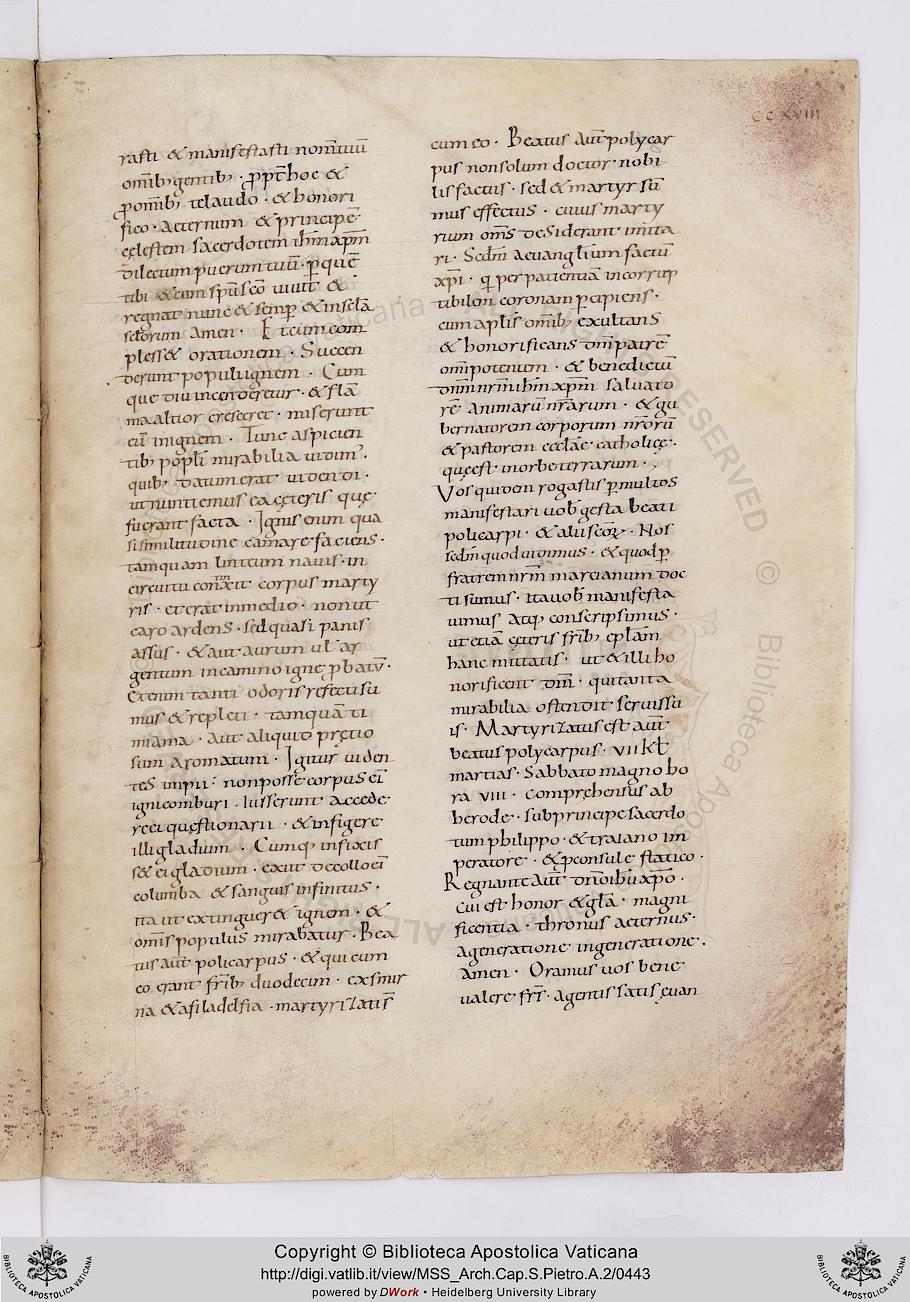 CCXVIII
rasti & manifestasti nom̄ tuū
om̄ib; gentib; · ꝓpt̄ hoc &
ꝓ om̄ib; te laudo · & honori
fico · aeternum & principē
cęlestem sacerdotem ih̄m xp̄m
dilectum puerum tuū · ꝑ quē
tibi & cum sp̄u sc̄o uiuit &
regnat nunc & semꝑ & in sc̄lā
sc̄lorum amen · Et cum com
pless& orationem · Succen
derunt populi ignem · Cum
que diu incenderetur · & flā
ma altior cresceret · miserunt
eū in ignem · Tunc aspicien
tib; popl̄i mirabilia uidim̄ ·
quib; datum erat uidendi ·
ut nuntiemus ea cęteris quę
fuerant facta · Ignis enim qua
si similitudine camare faciens ·
tamquam linteum nauis · in
circuitu contexit corpus marty
ris · et erat in medio · non ut
caro ardens · sed quasi panis
assus · & aut aurum ul̄ ar
gentum in camino igne ꝓbatū ·
Etenim tanti odoris refecti su
mus & repleti · tamquā ti
miama · aut aliquid prętio
sum aromatum · Igitur uiden
tes impii · non posse corpus eī
igni comburi · Iusserunt accede
re ei quęstionarii · & infigere
illi gladium · Cumq; infixis
s& ei gladium · exiit de collo eī
columba & sanguis infinitus ·
ita ut extinguer& ignem · &
omīs populus mirabatur · Bea
tus aūt policarpus · & qui cum
eo erant fr̄ib; duodecim · ex smir
na & a filadelfia · martyrizatis
cum eo · Beatus aūt polycar
pus non solum doctor nobi
lis factus · sed & martyr sū
mus effectus · cuius marty
rium om̄s desiderant imita
ri · Secdm̄ aeuangl̄ium factū
xp̄i · q per patientiā incorrup
tibilem coronam ꝑcipiens ·
cum apl̄is om̄ib; exultans
& honorificans dm̄ patrē
om̄ipotentem · & benedictū
dnm̄ nr̄m ih̄m xp̄m saluato
rē animarū nr̄arum · & gu
bernatorem corporum nr̄orū
& pastorem eccl̄ae catholicę ·
quę est in orbe terrarum ·
Vos quidem rogastis ꝑ multos
manifestari uob̄ gesta beati
policarpi · & alii sc̄oꝝ · Nos
secdm̄ quod uidimus · & quod ꝑ
fratrem nr̄m marcianum doc
ti sumus · ita uob̄ manifesta
uimus atq; conscripsimus ·
ut etiā cęteris fr̄ib; epl̄am
hanc mittatis · ut & illi ho
norificent dm̄ · qui tanta
mirabilia ostendit seruis su
is · Martyrizatus est aūt
beatus polycarpus · VII kl̄
martias · Sabbato magno ho
ra VIII · comprehensus ab
herode · sub principe sacerdo
tum philippo · & traiano im
peratore · & ꝓconsule statico ·
Regnante aūt dno ih̄u xp̄o ·
cui est honor & gl̄a · magni
ficentia · thronus aeternus ·
a generatione in generatione ·
Amen · Oramus uos bene
ualere fr̄s · agentis satis euan
Copyright © Biblioteca Apostolica Vaticana
http://digi.vatlib.it/view/MSS_Arch.Cap.S.Pietro.A.2/0443
powered by DWork • Heidelberg University Library